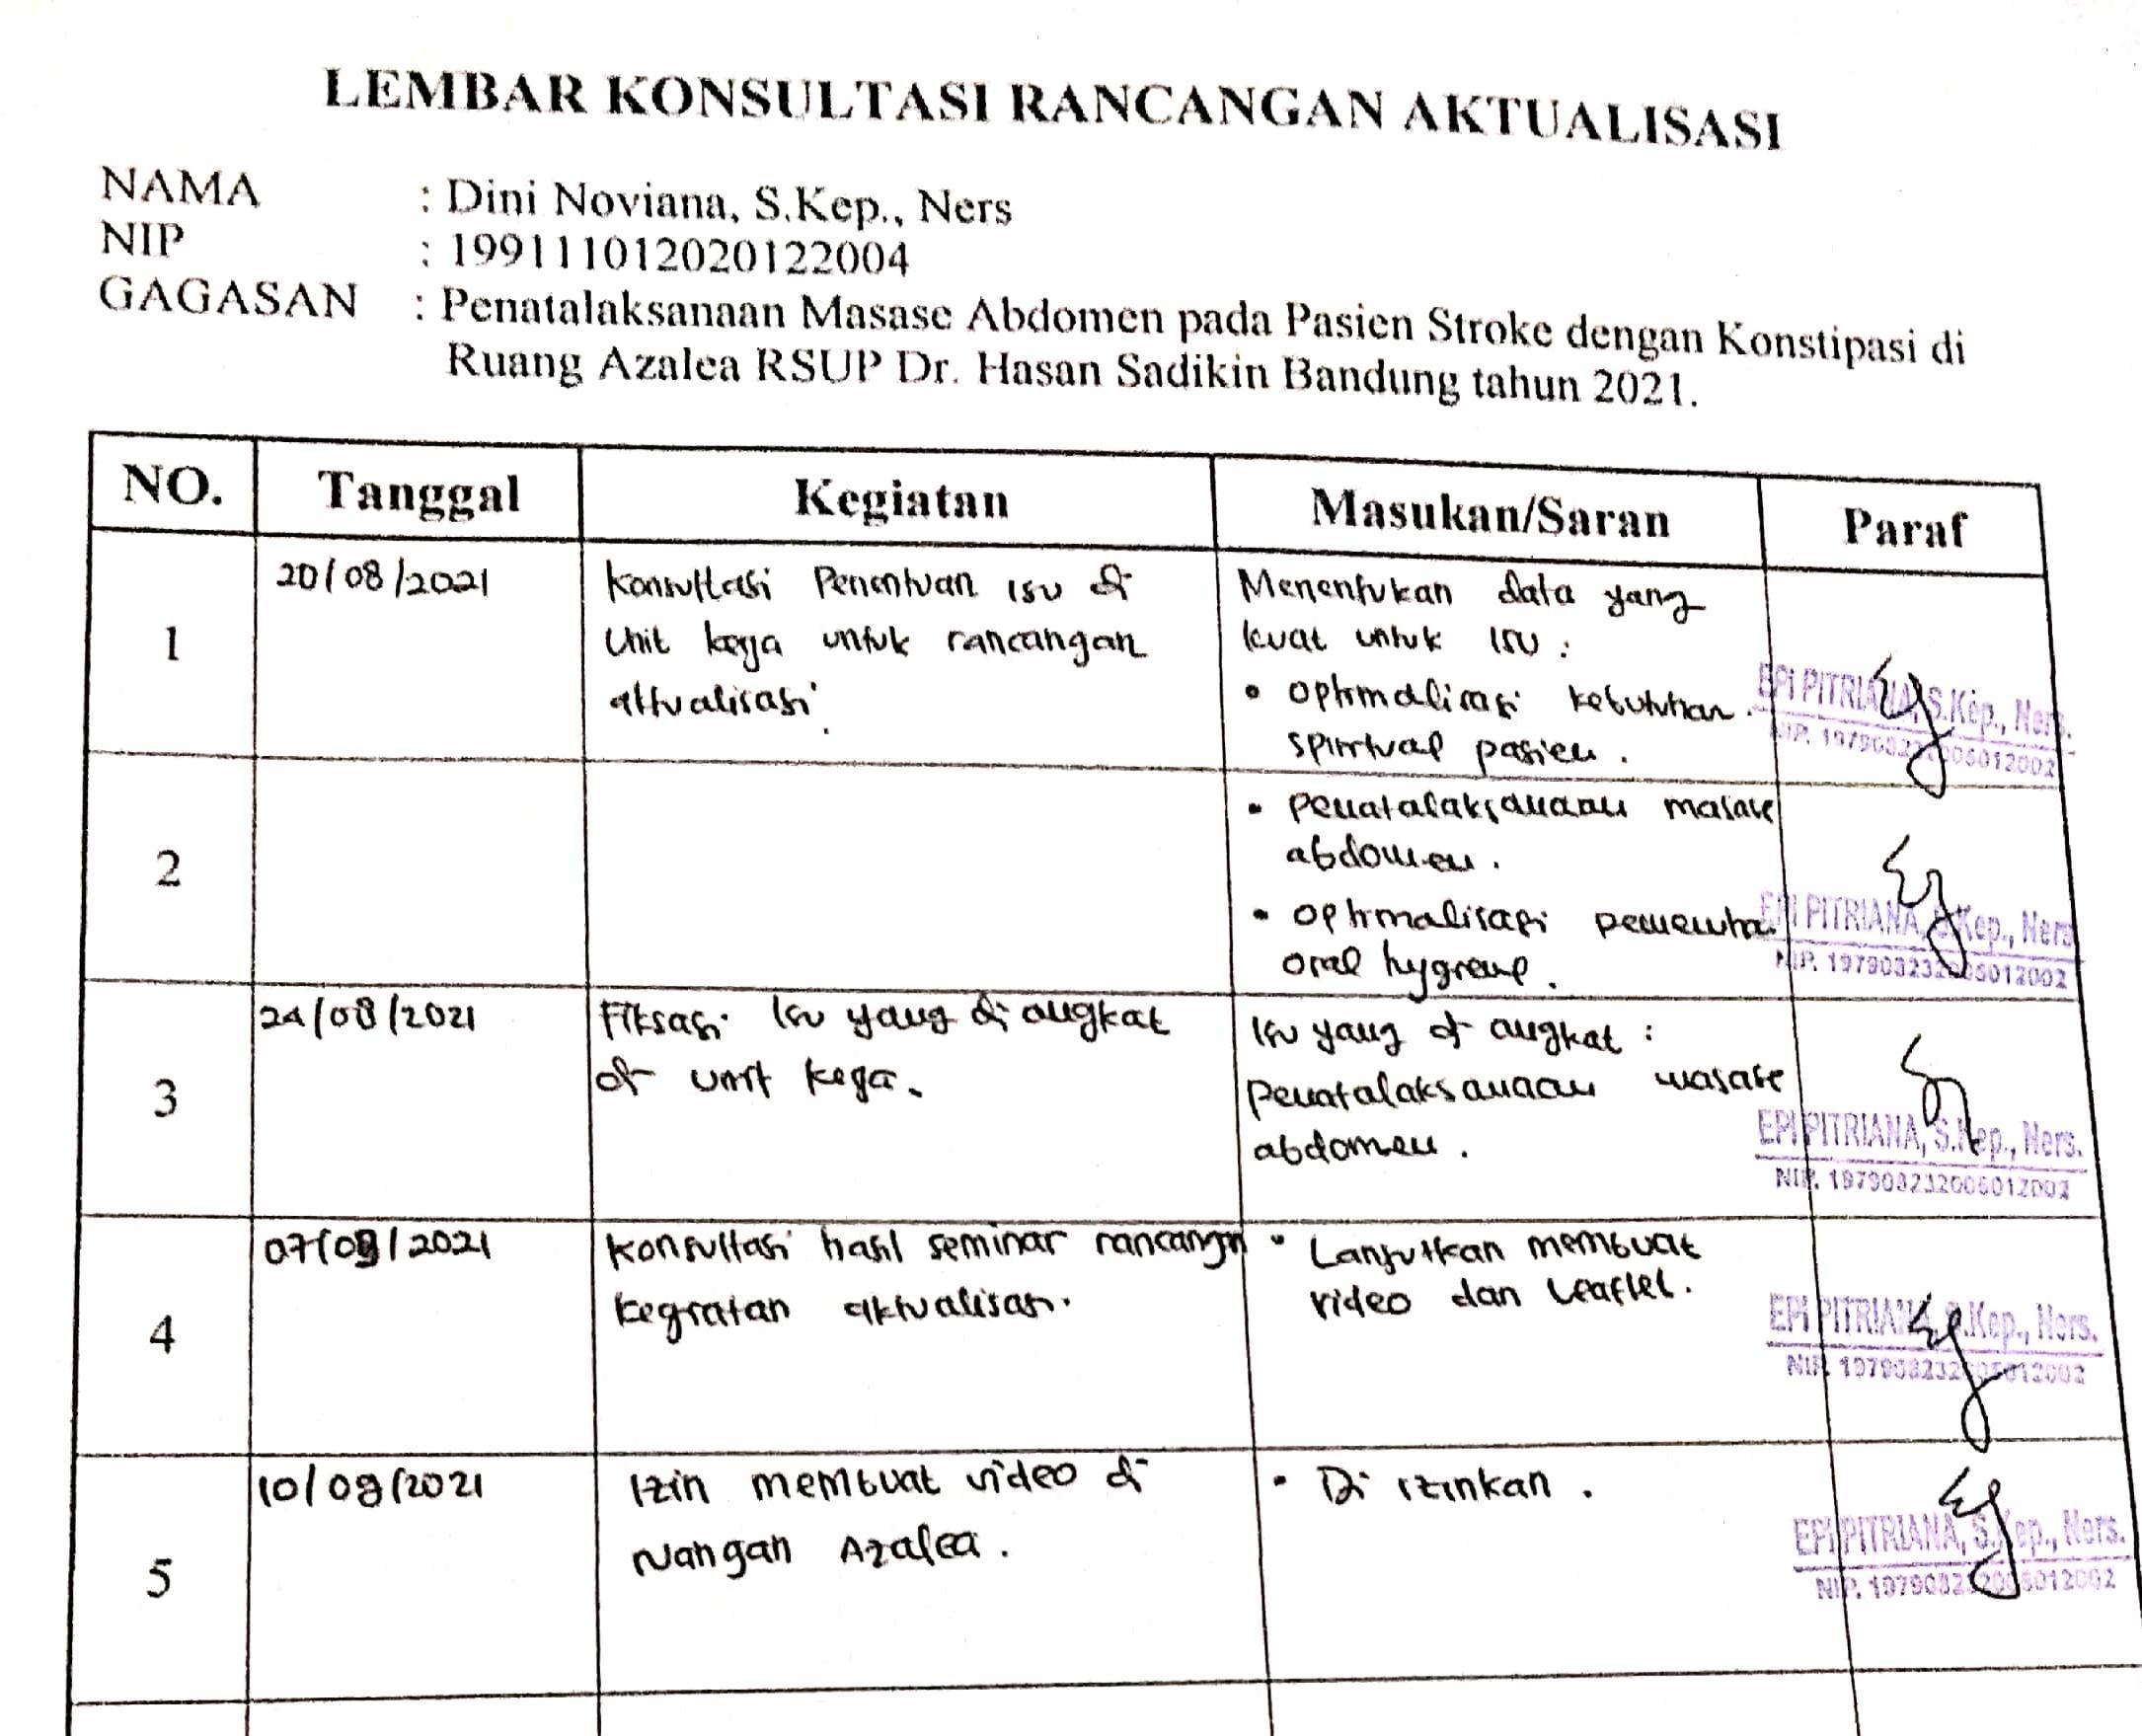 LEMBAR KONSULTASI RANCANGAN AKTUALISASI
NAMA : Dini Noviana, S.Kep., Ners
NIP : 199111012020122004
GAGASAN : Penatalaksanaan Masase Abdomen pada Pasien Stroke dengan Konstipasi di
Ruang Azalea RSUP Dr. Hasan Sadikin Bandung tahun 2021.
NO. Tanggal Kegiatan Masukan/Saran Paraf
1
20/08/2021
Konsultasi Penentuan isu di
Unit kerja untuk rancangan
aktualisasi.
Menentukan data yang
kuat untuk isu :
• optimalisasi kebutuhan
spiritual pasien.
EPI PITRIANA, S.Kep., Ners.
NIP. 197908232005012002
2
• penatalaksanaan masase
abdomen.
• optimalisasi
oral hygiene.
EPI PITRIANA, S.Kep., Ners
NIP. 197908232005012002
3
24/08/2021
Fiksasi isu yang di angkat
di unit kerja.
Isu yang di angkat :
penatalaksanaan masase
abdomen.
EPI PITRIANA, S.Kep., Ners.
NIP. 197908232005012002
4
07/09/2021
Konsultasi hasil seminar rancangan
kegiatan aktualisasi.
• Lanjutkan membuat
video dan leaflet.
EPI PITRIANA, S.Kep., Ners.
NIP. 197908232005012002
5
10/09/2021
Izin membuat video di
ruangan Azalea.
• Di izinkan.
EPI PITRIANA, S.Kep., Ners.
NIP. 197908232005012002